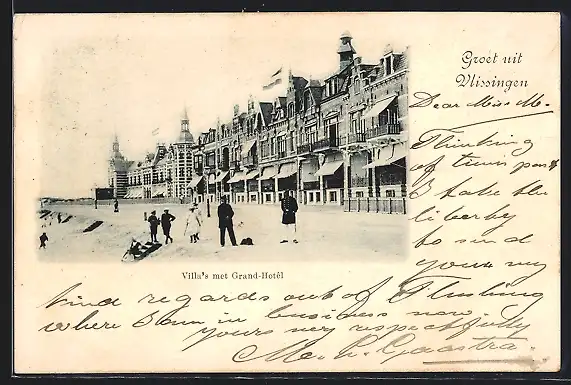 Groet uit
Vlissingen
Dear Miss M.
Thinking
of times past
I take the
liberty
to send
you my
kind regards out of Flushing
where I am in business now
yours very respectfully
Villa's met Grand-Hotêl